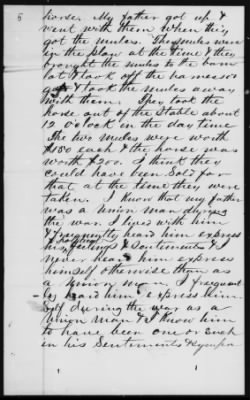 5
horse. My father got up &
went with them when they
got the mules. The mules were
in the plow at the time & they
brought the mules to the barn
lot & took off the harness or
gear & took the mules away
with them. They took the
horse out of the stable about
12 O clock in the day time.
The two mules were worth
$150 each & the horse was
worth $200. I think they
could have been sold for
that at the time they were
taken. I know that my father
was a Union man during
the war. I lived with him
& frequently heard him express
his feelings & Sentiments &
never hear him express
himself otherwise than as
a Union man. I frequent
ly heard him express him
self during the war as a
Union man & I know him
to have been one or such
in his Sentiments & sympa